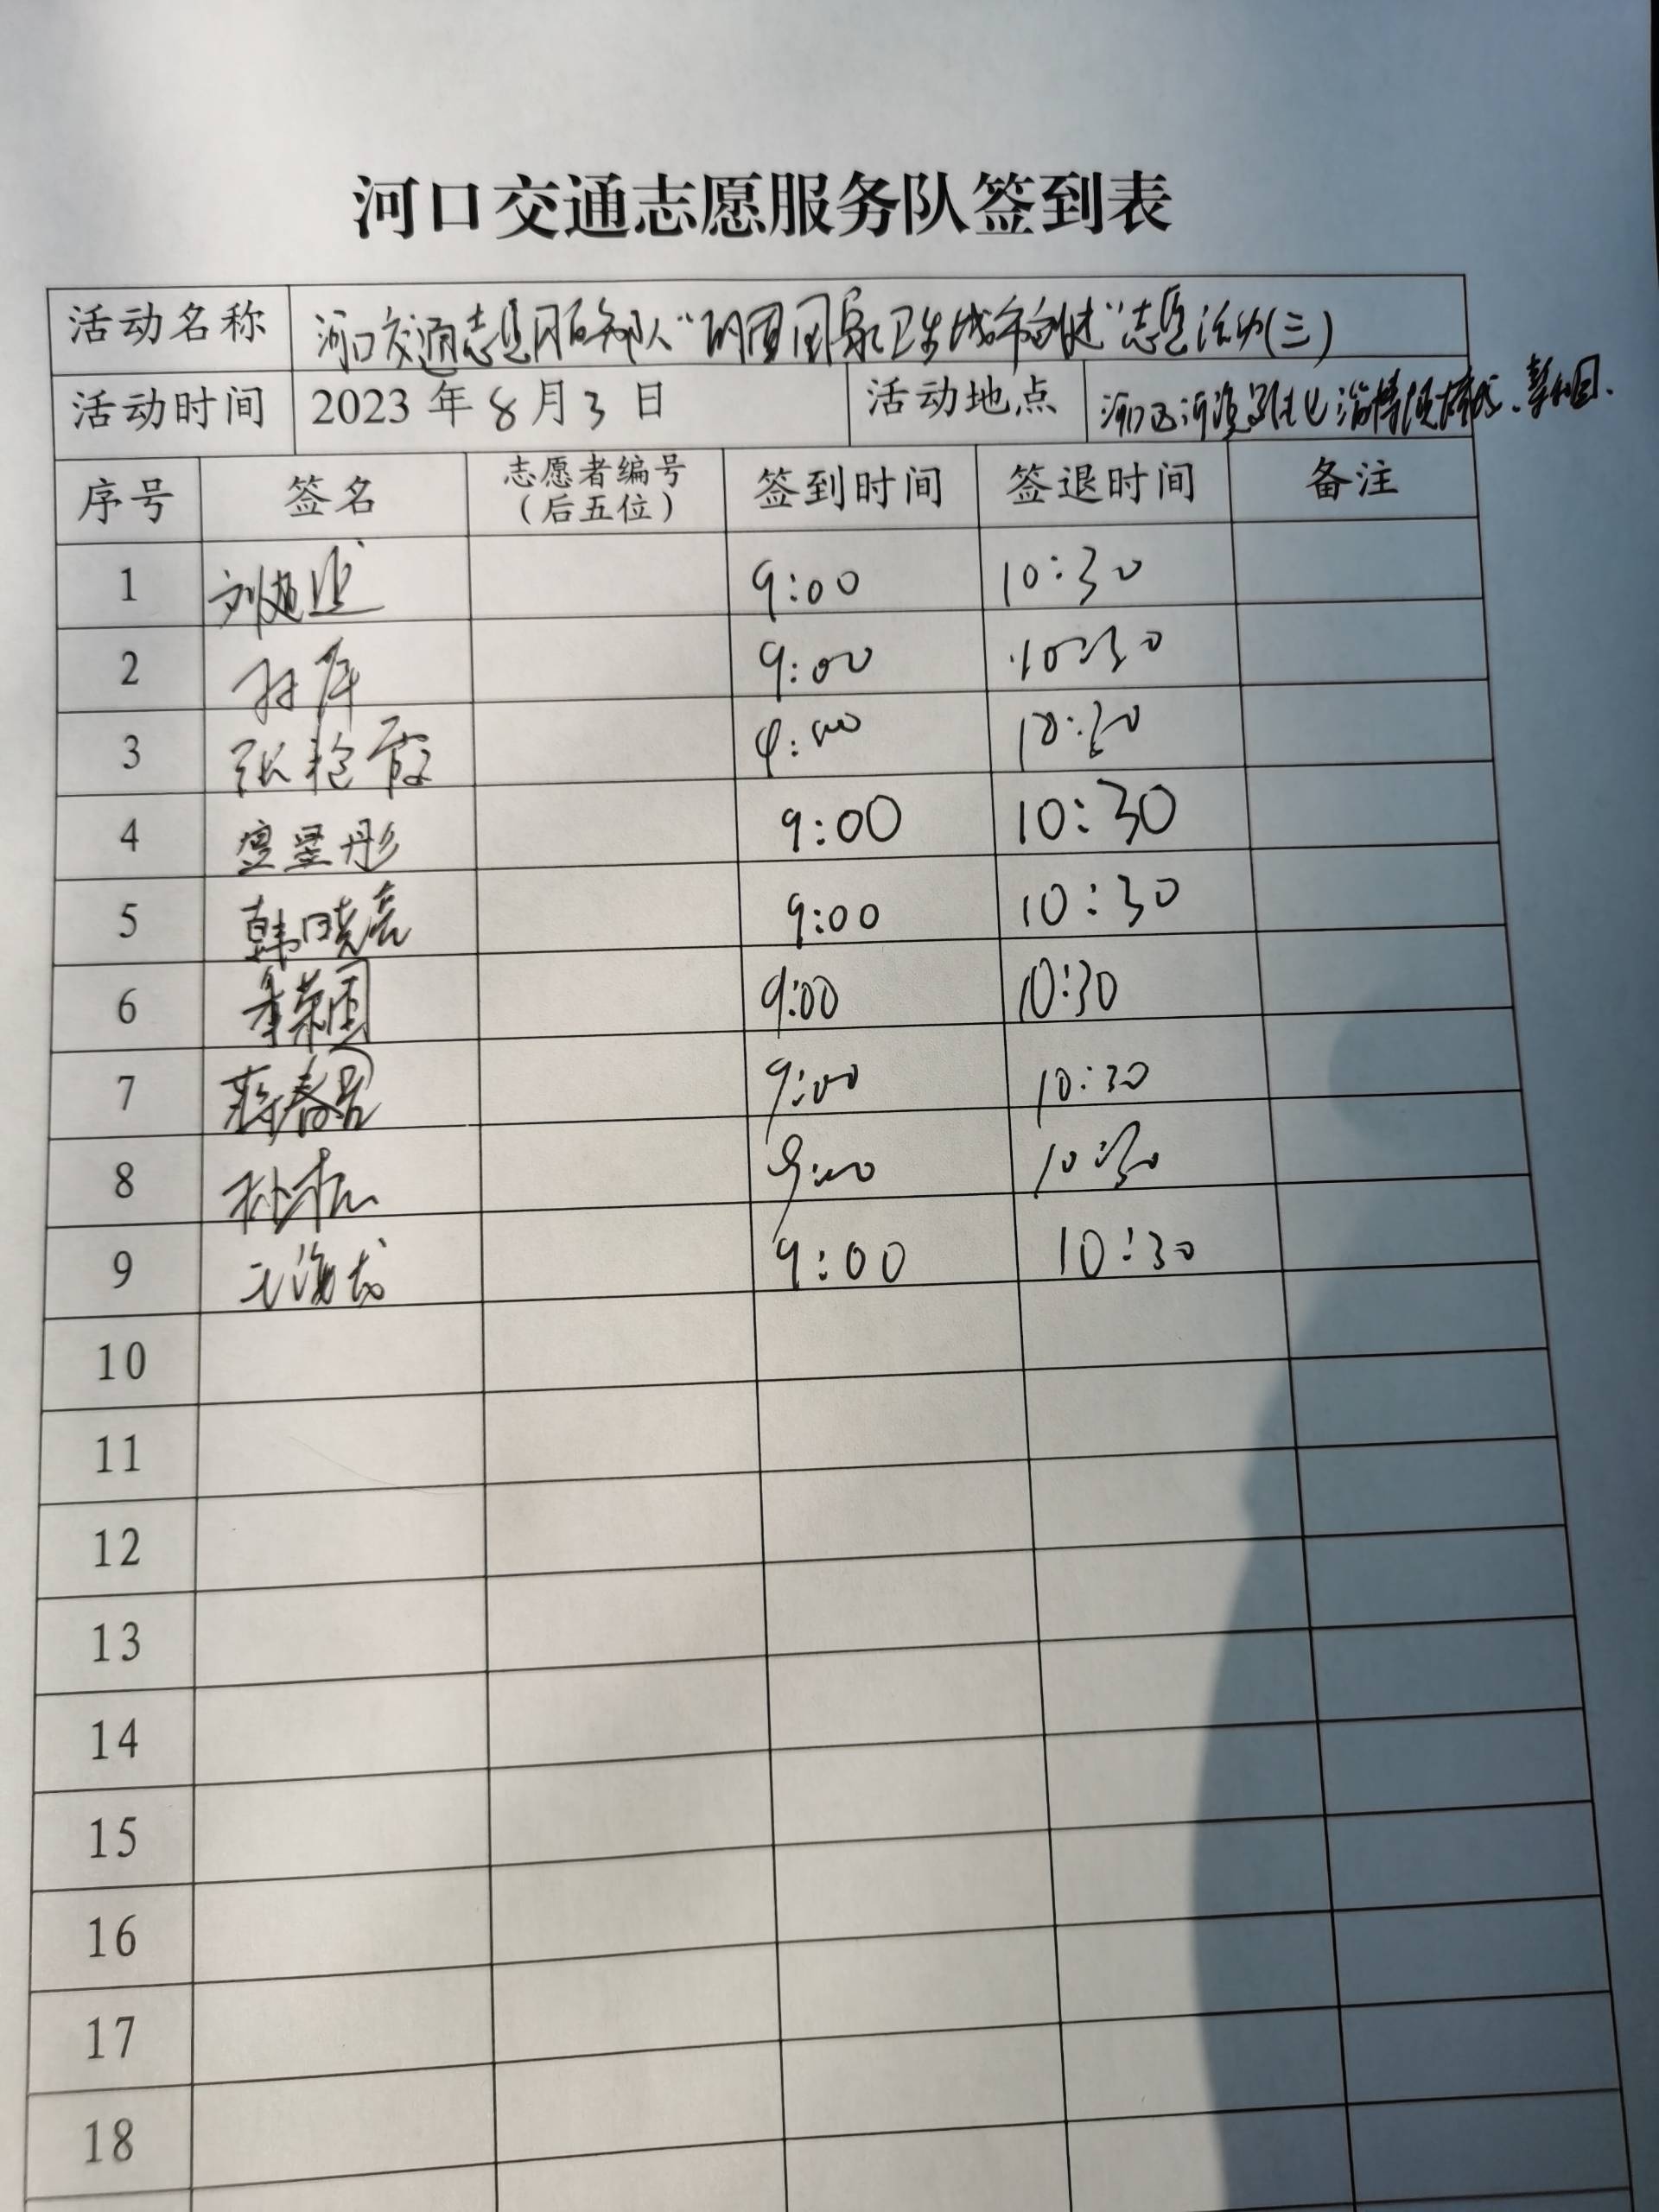 河口交通志愿服务队签到表
活动名称 河口交通志愿服务队“巩固国家卫生城市创建”志愿活动(三)
活动时间 2023年8月3日 活动地点 河口区河滨
序号 签名 志愿者编号(后五位) 签到时间 签退时间 备注
1 9:00 10:30
2 9:00 10:30
3 张艳霞 9:00 10:30
4 9:00 10:30
5 韩晓亮 9:00 10:30
6 9:00 10:30
7 9:00 10:30
8 9:00 10:30
9 王海龙 9:00 10:30
10
11
12
13
14
15
16
17
18